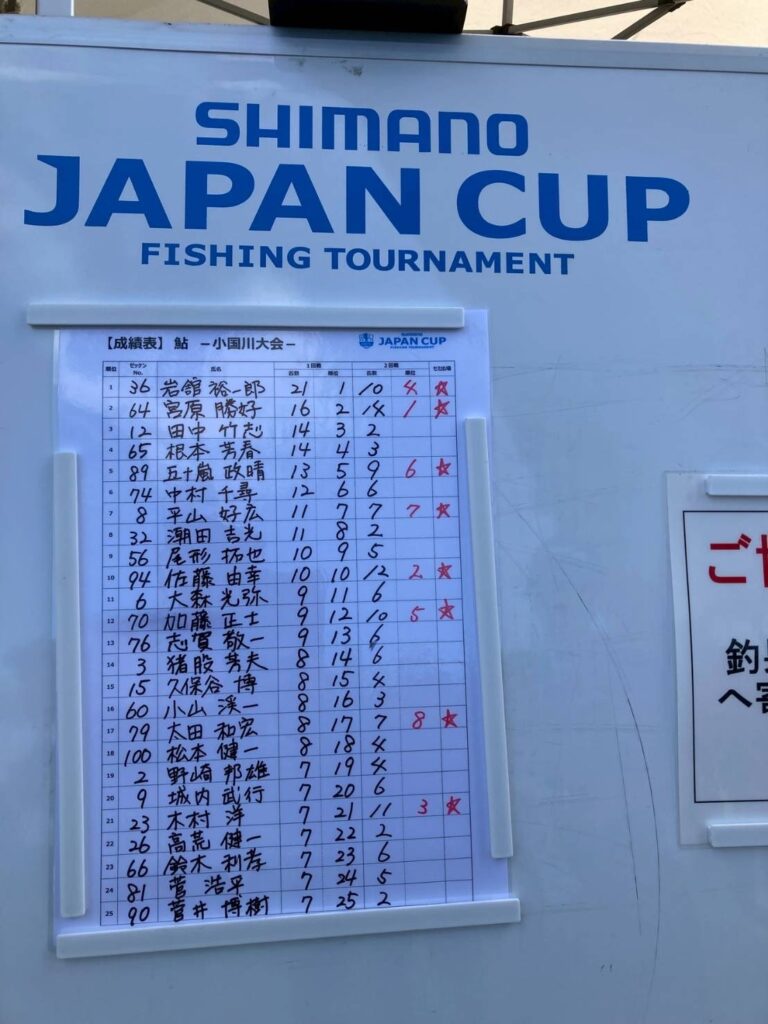 SHIMANO
JAPAN CUP
FISHING TOURNAMENT
【成績表】 鮎 －小国川大会－ SHIMANO JAPAN CUP FISHING TOURNAMENT
順位 ゼッケンNo. 氏名 1回戦 2回戦
尾数 順位 尾数 順位
1 36 岩舘 裕一郎 21 1 10 4 ☆
2 64 宮原 勝好 16 2 14 1 ☆
3 12 田中 竹志 14 3 2
4 65 根本 芳春 14 4 3
5 89 五十嵐 政晴 13 5 9 6 ☆
6 74 中村 千尋 12 6 6
7 8 平山 好広 11 7 7 7 ☆
8 32 潮田 吉光 11 8 2
9 56 尾形 拓也 10 9 5
10 94 佐藤 由幸 10 10 12 2 ☆
11 6 大森 光弥 9 11 6
12 70 加藤 正士 9 12 10 5 ☆
13 76 志賀 敬一 9 13 6
14 3 猪股 芳夫 8 14 6
15 15 久保谷 博 8 15 4
16 60 小山 渓一 8 16 3
17 79 太田 和宏 8 17 7 8 ☆
18 100 松本 健一 8 18 4
19 2 野崎 邦雄 7 19 4
20 9 城内 武行 7 20 6
21 23 木村 洋 7 21 11 3 ☆
22 26 高荒 健一 7 22 2
23 66 鈴木 利孝 7 23 6
24 81 菅 浩平 7 24 5
25 90 菅井 博樹 7 25 2
ご
釣
へ寄